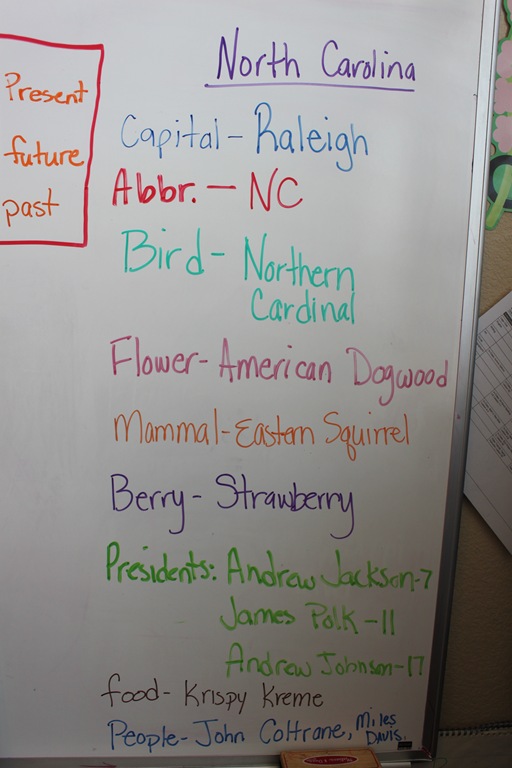 Present
future
past
North Carolina
Capital - Raleigh
Abbr. - NC
Bird - Northern
Cardinal
Flower - American Dogwood
Mammal - Eastern Squirrel
Berry - Strawberry
Presidents: Andrew Jackson - 7
James Polk - 11
Andrew Johnson - 17
food - Krispy Kreme
People - John Coltrane, Miles
Davis.